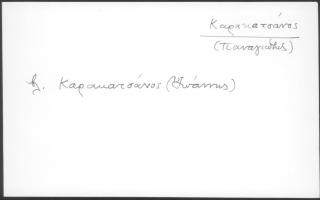 Καρακατσάνος
(Παναγιώτης)
βλ. Καρακατσάνος (Ιωάννης)